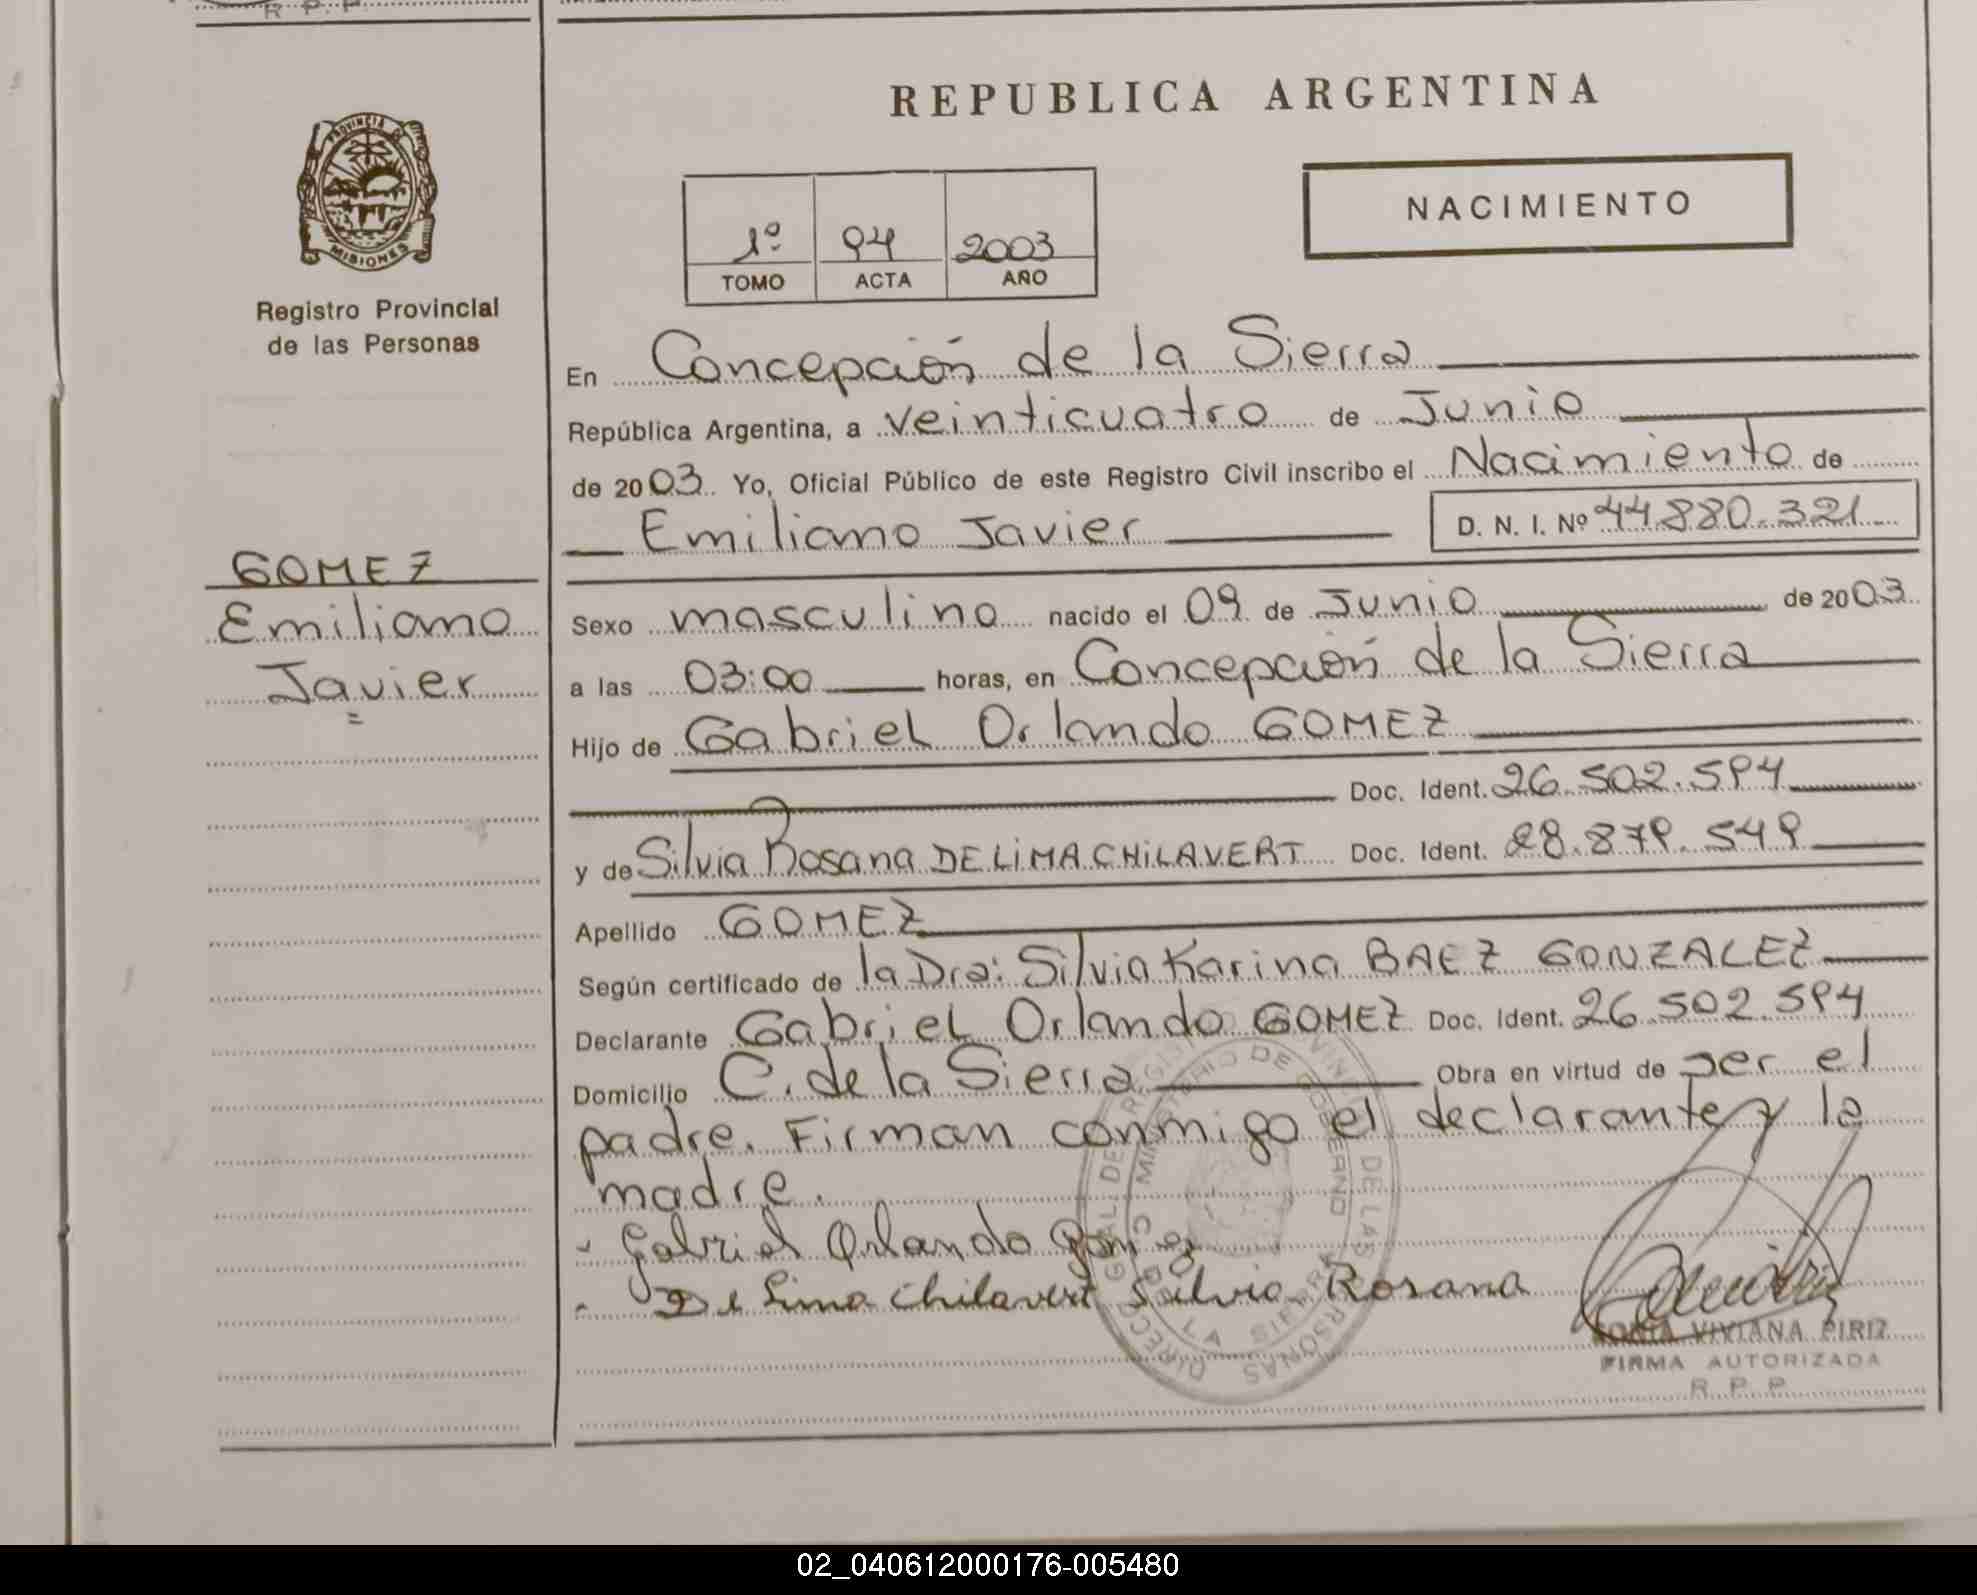 R. P. P.
REPUBLICA ARGENTINA
PROVINCIA DE
MISIONES
Registro Provincial
de las Personas
NACIMIENTO
1º 94 2003
TOMO ACTA AÑO
En Concepción de la Sierra
República Argentina, a veinticuatro de Junio
de 2003. Yo, Oficial Público de este Registro Civil inscribo el Nacimiento de
Emiliano Javier D. N. I. Nº 44.880.321
GOMEZ
Emiliano
Javier
Sexo masculino nacido el 09 de Junio de 2003
a las 03:00 horas, en Concepción de la Sierra
Hijo de Gabriel Orlando GOMEZ
Doc. Ident. 26.502.594
y de Silvia Rosana DE LIMA CHILAVERT Doc. Ident. 28.879.549
Apellido GOMEZ
Según certificado de la Dra: Silvia Karina BAEZ GONZALEZ
Declarante Gabriel Orlando GOMEZ Doc. Ident. 26.502.594
Domicilio C. de la Sierra Obra en virtud de ser el
padre. Firman conmigo el declarante y la
madre.
- Gabriel Orlando Gomez
- De Lima Chilavert Silvia Rosana
SONIA VIVIANA PIRIZ
FIRMA AUTORIZADA
R. P. P.
MINISTERIO DE GOBIERNO
DE LA SIERRA
02_040612000176-005480